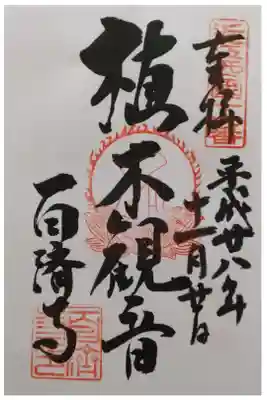 奉拝
平成廿八年
十一月廿日
植木觀音
百済寺